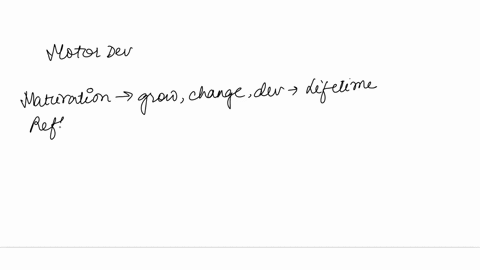 Motor Dev
Maturation → grow, change, dev → Lifetime
Ref